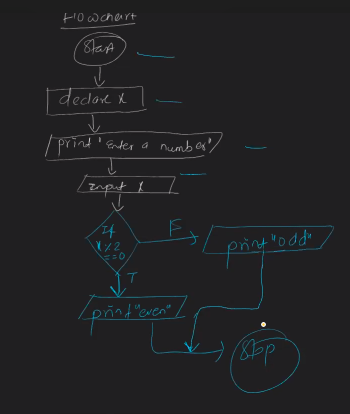 Flowchart
Start
declare x
print "Enter a number"
input x
If
x%2
==0
F
print "odd"
T
print "even"
Stop